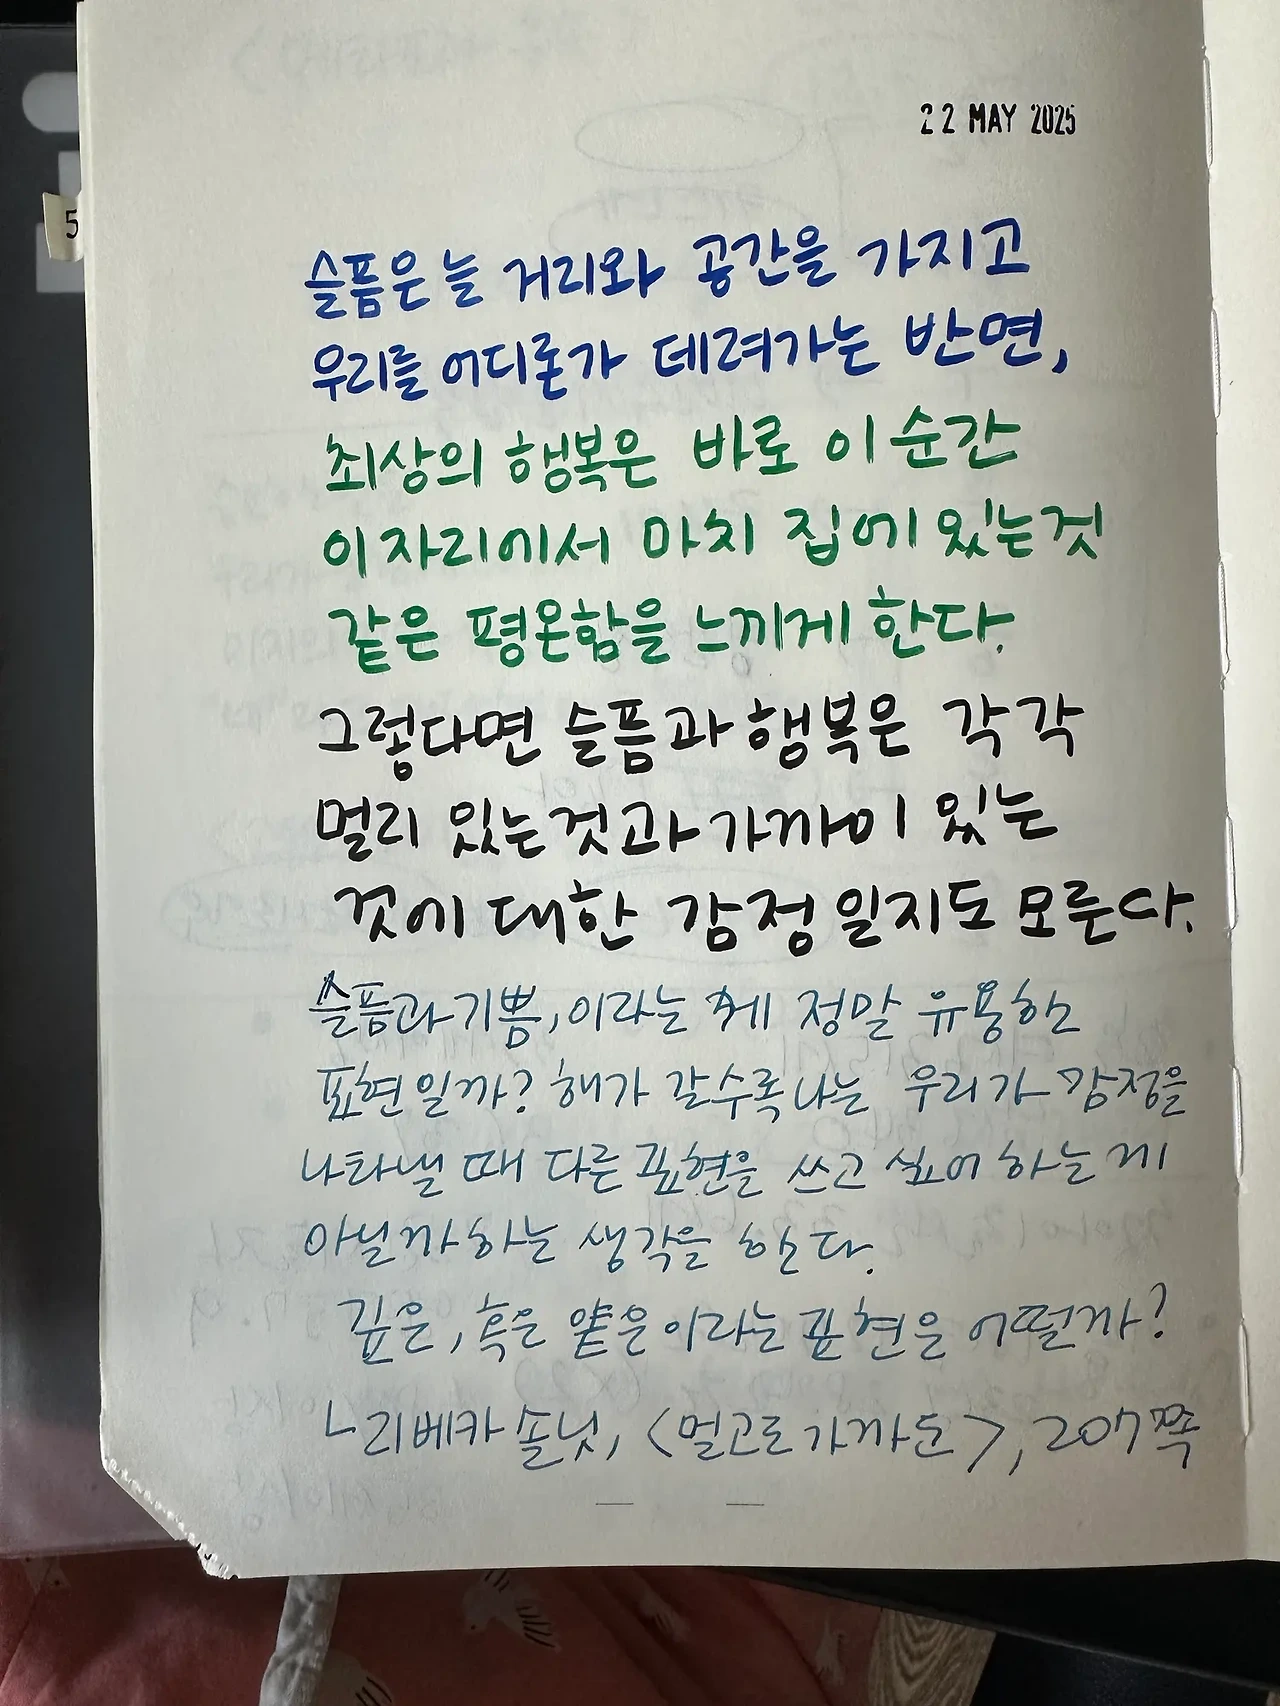 22 MAY 2025
5
슬픔은 늘 거리와 공간을 가지고
우리를 어디론가 데려가는 반면,
최상의 행복은 바로 이 순간
이 자리에서 마치 집에 있는 것
같은 평온함을 느끼게 한다.
그렇다면 슬픔과 행복은 각각
멀리 있는 것과 가까이 있는
것에 대한 감정일지도 모른다.
슬픔과 기쁨, 이라는 게 정말 유용한
표현일까? 해가 갈수록 나는 우리가 감정을
나타낼 때 다른 표현을 쓰고 싶어 하는 게
아닐까 하는 생각을 한다.
깊은, 혹은 얕은 이라는 표현은 어떨까?
ㄴ리베카 솔닛, <멀고도 가까운>, 207쪽